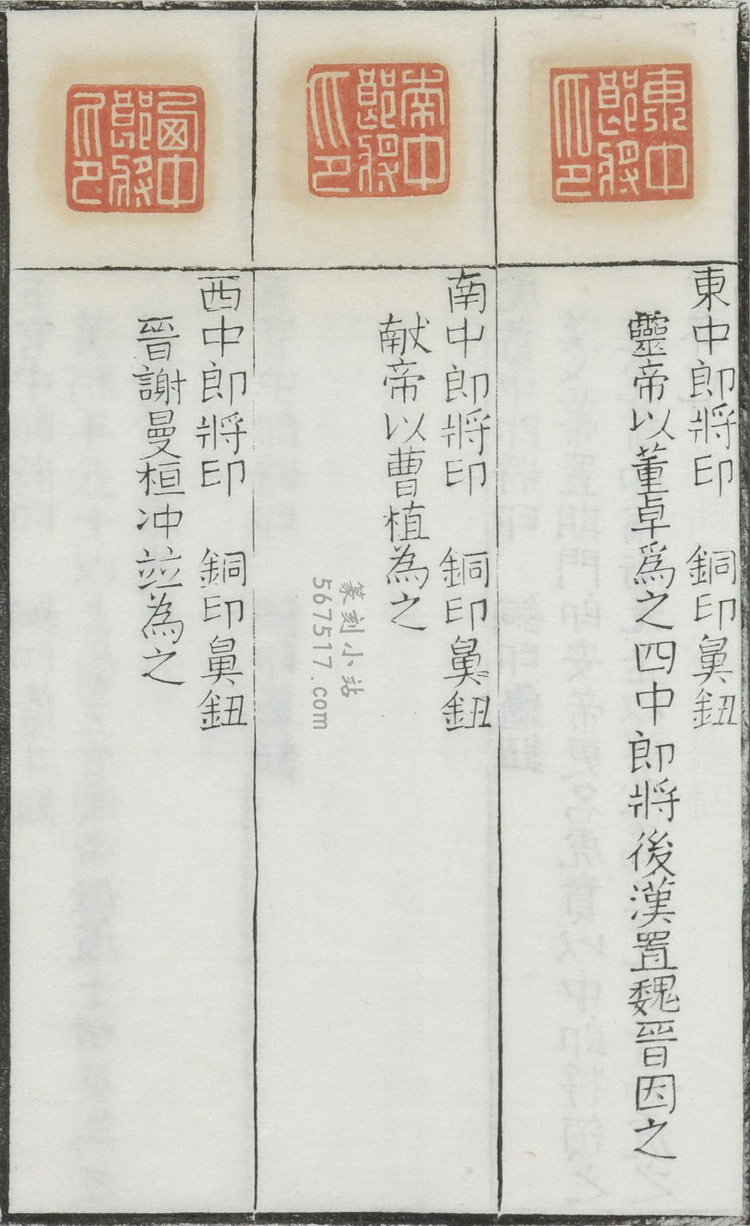 東中郎將印
東中郎將印　銅印鼻鈕
靈帝以董卓爲之四中郎將後漢置魏晋因之
南中郎將印
南中郎將印　銅印鼻鈕
献帝以曹植為之
西中郎將印
西中郎將印　銅印鼻鈕
晋謝曼桓冲竝為之
篆刻小站
567517.com